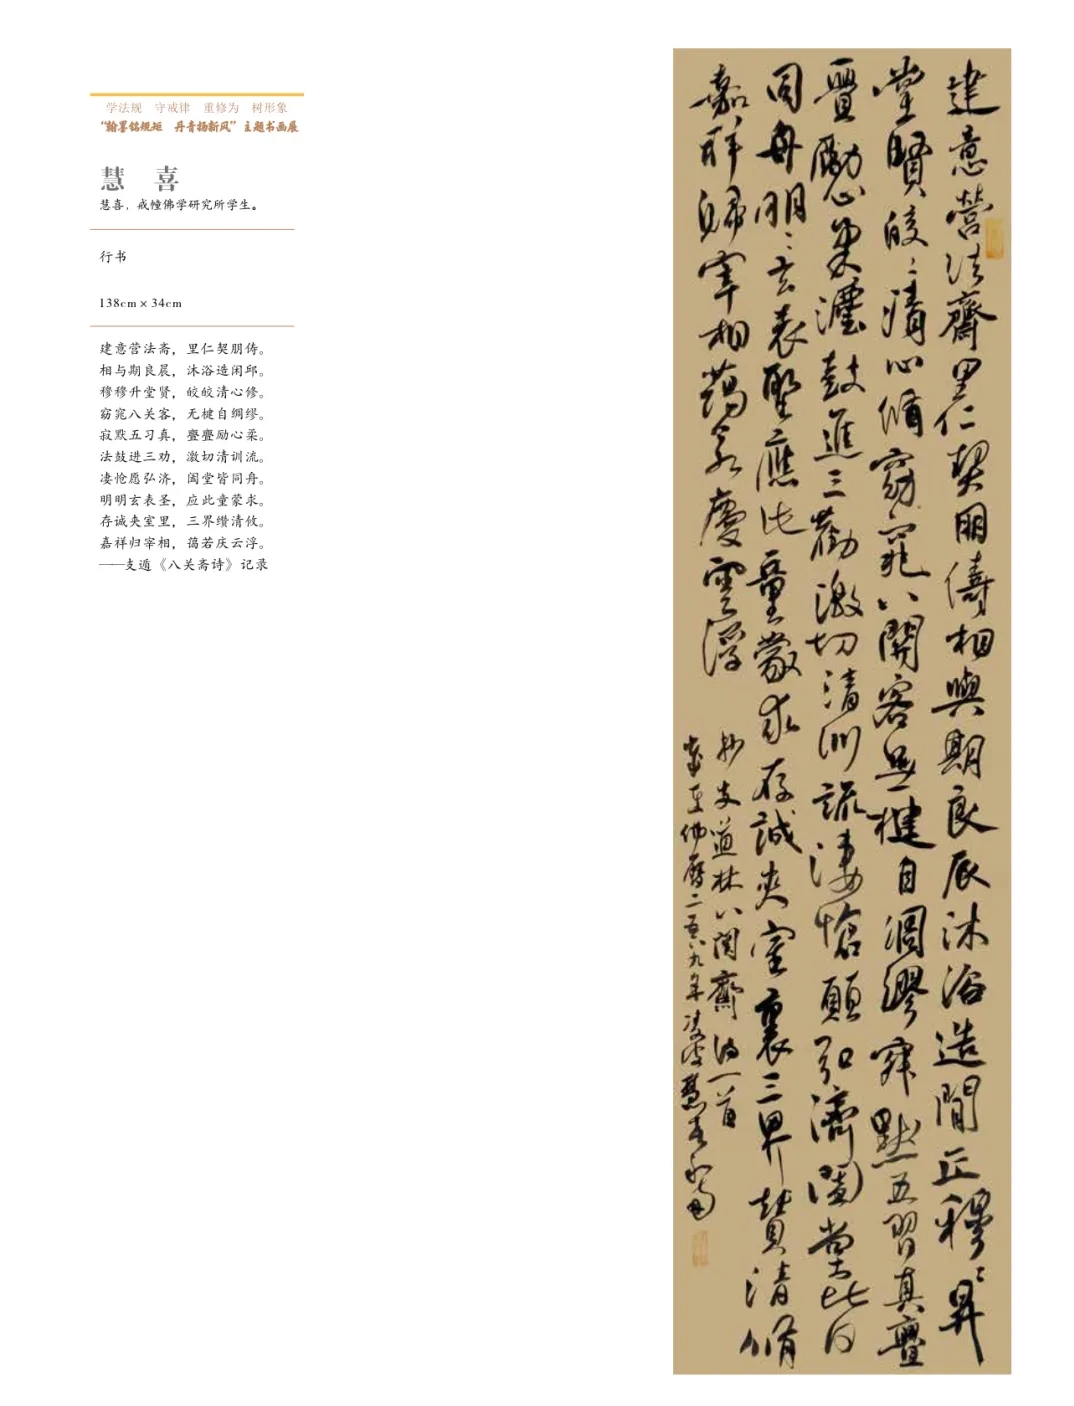 学法规　守戒律　重修为　树形象
“翰墨铭规矩　丹青扬新风”主题书画展
慧　喜
慧喜，戒幢佛学研究所学生。
行书
138cm × 34cm
建意营法斋，里仁契朋俦。
相与期良晨，沐浴造闲邱。
穆穆升堂贤，皎皎清心修。
窈窕八关客，无楗自绸缪。
寂默五习真，亹亹励心柔。
法鼓进三劝，激切清训流。
凄怆愿弘济，阖堂皆同舟。
明明玄表圣，应此童蒙求。
存诚夹室里，三界缵清攸。
嘉祥归宰相，蔼若庆云浮。
——支遁《八关斋诗》记录
建意营法齋里仁契朋儔相與期良辰沐浴造閒丘穆〻昇
堂賢皎〻清心脩窈窕八關客無楗自凋繆寂默五習真亹
亹勵心柔灋鼓進三勸激切清訓流淒愴願弘濟闔堂皆
同舟明〻玄表聖應此童蒙求存誠夾室裏三界贊清脩
嘉祥歸宰相藹若慶雲浮
抄支道林八関齋詩一首
歲在佛曆二五六九年凌波慧喜